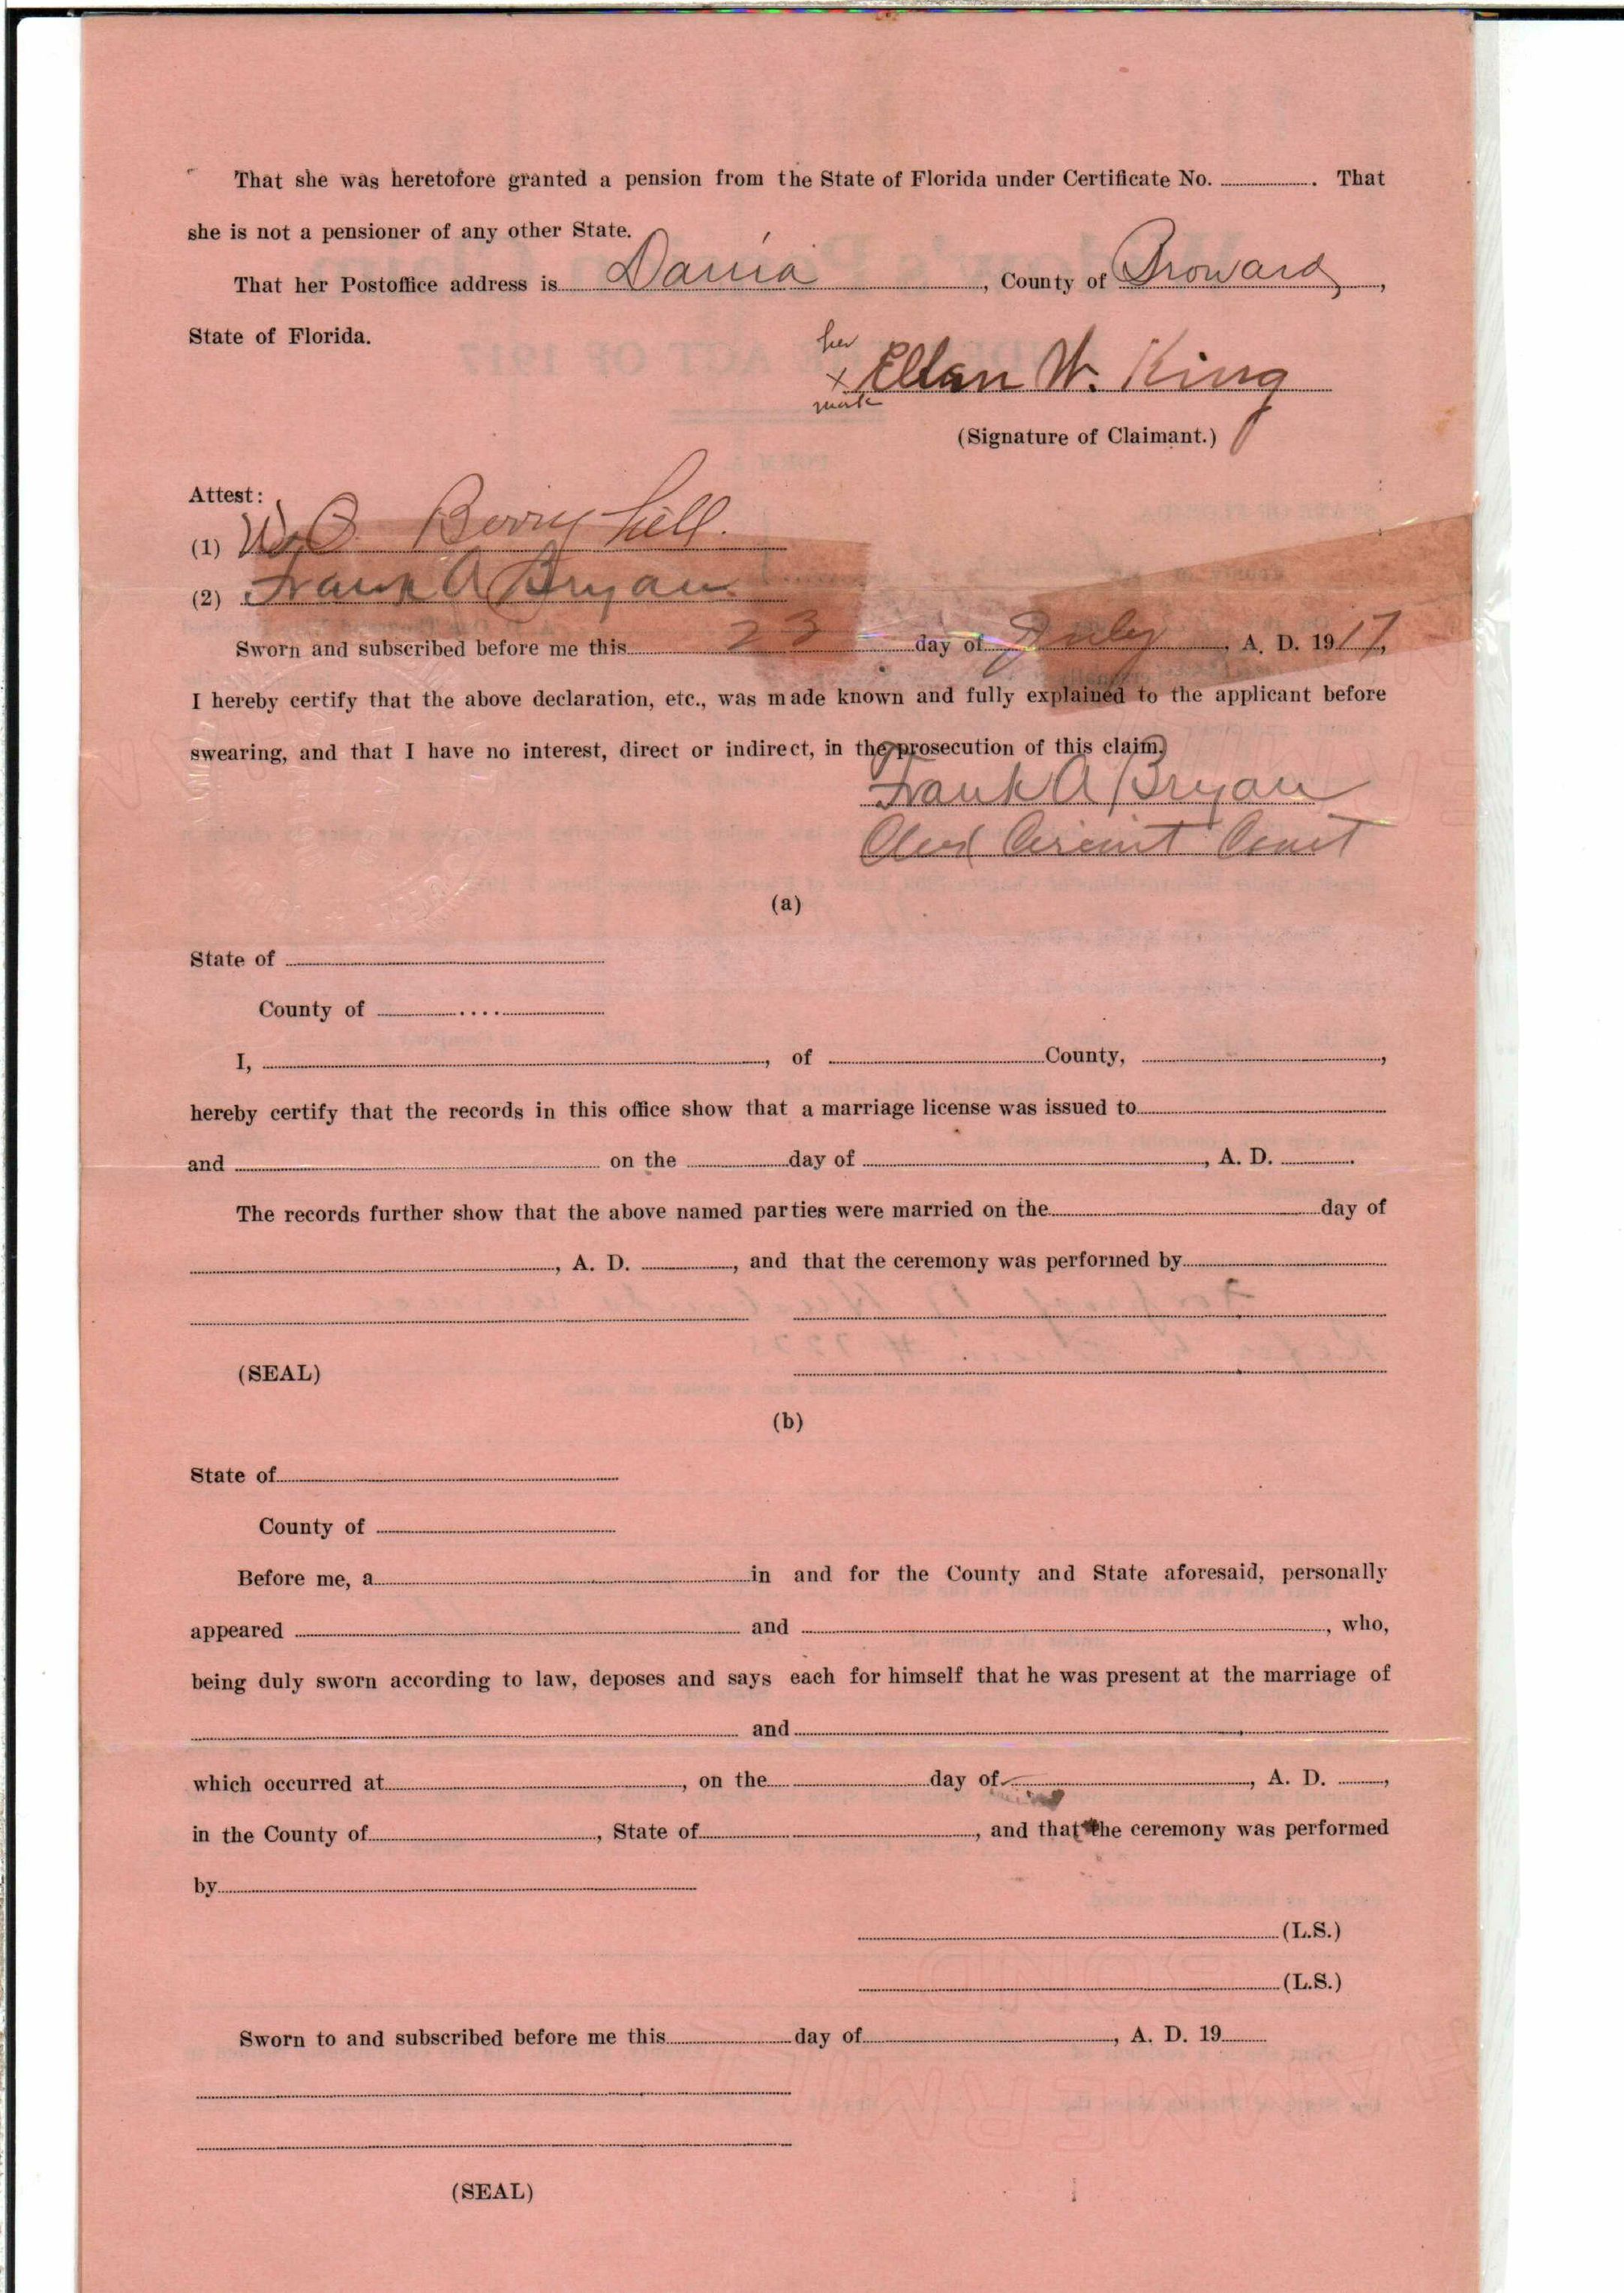 That she was heretofore granted a pension from the State of Florida under Certificate No. .......... . That
she is not a pensioner of any other State.
That her Postoffice address is Dania, County of Broward,
State of Florida.
her
x Ellen W. King
mark
(Signature of Claimant.)
Attest:
(1) W. O. Berryhill.
(2) Frank A Bryan
Sworn and subscribed before me this 23 day of July, A. D. 1917,
I hereby certify that the above declaration, etc., was made known and fully explained to the applicant before
swearing, and that I have no interest, direct or indirect, in the prosecution of this claim.
Frank A Bryan
Clerk Circuit Court
(a)
State of ..........
County of ..........
I, .........., of .......... County, ..........,
hereby certify that the records in this office show that a marriage license was issued to ..........
and .......... on the .......... day of .........., A. D. ...........
The records further show that the above named parties were married on the .......... day of
.........., A. D. .........., and that the ceremony was performed by ..........
(SEAL)
(b)
State of ..........
County of ..........
Before me, a .......... in and for the County and State aforesaid, personally
appeared .......... and .........., who,
being duly sworn according to law, deposes and says each for himself that he was present at the marriage of
.......... and ..........
which occurred at .........., on the .......... day of .........., A. D. ..........,
in the County of .........., State of .........., and that the ceremony was performed
by ..........
.......... (L.S.)
.......... (L.S.)
Sworn to and subscribed before me this .......... day of .........., A. D. 19..........
(SEAL)